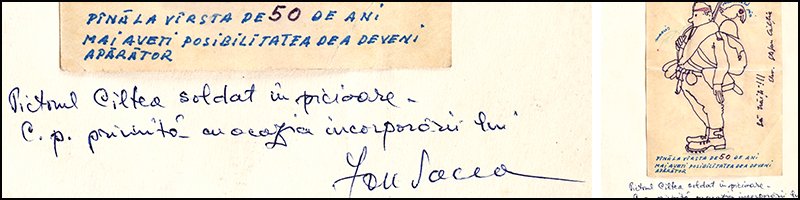 PÎNĂ LA VÎRSTA DE 50 DE ANI
MAI AVEȚI POSIBILITATEA DE A DEVENI
APĂRĂTOR
Pictorul Ciltea soldat în picioare.
C. p. primită cu ocazia incorporării lui
Ion Sacea
PÎNĂ LA VÎRSTA DE 50 DE ANI
MAI AVEȚI POSIBILITATEA DE A DEVENI
APĂRĂTOR
Pictorul Ciltea soldat în picioare.
C. p. primită cu ocazia incorporării lui